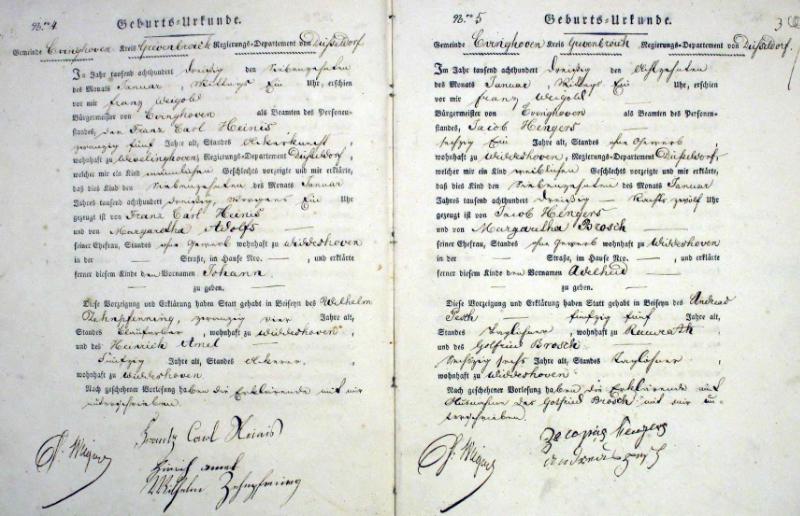 No. 4
Geburts-Urkunde.
Gemeinde Evinghoven Kreis Grevenbroich Regierungs-Departement von Düsseldorf.
Im Jahr tausend achthundert Dreißig den Siebenzehnten
des Monats Januar, Mittags Ein Uhr, erschien
vor mir Franz Weigold
Bürgermeister von Evinghoven als Beamten des Personen-
standes, den Franz Carl Heinis
zwanzig fünf Jahre alt, Standes
wohnhaft zu Wevelinghoven, Regierungs-Departement Düsseldorf,
welcher mir ein Kind männlichen Geschlechts vorzeigte und mir erklärte,
daß dies Kind den Siebenzehnten des Monats Januar
Jahres tausend achthundert Dreißig, Morgens Ein Uhr
gezeugt ist von Franz Carl Heinis
und von Margaretha Adolfs
seiner Ehefrau, Standes ohne Gewerb wohnhaft zu Widdeshoven
in der Straße, im Hause Nro. , und erklärte
ferner diesem Kinde den Vornamen Johann
zu geben.
Diese Vorzeigung und Erklärung haben Statt gehabt in Beiseyn des Wilhelm
Zehnpfenning, zwanzig vier Jahre alt,
Standes , wohnhaft zu Widdeshoven
und des Heinrich Amel
Fünfzig Jahre alt, Standes Ackerer,
wohnhaft zu Widdeshoven
Nach geschehener Vorlesung haben die Erklärende mit mir
unterschrieben.
Frantz Carl Heinis
Hinrich Amel
Wilhelm Zehnpfennig
No. 5
Geburts-Urkunde.
3
Gemeinde Evinghoven Kreis Grevenbroich Regierungs-Departement von Düsseldorf.
Im Jahr tausend achthundert Dreißig den Achtzehnten
des Monats Januar, Mittags Ein Uhr, erschien
vor mir Franz Weigold
Bürgermeister von Evinghoven als Beamten des Personen-
standes, Jacob Hengers
sechzig Ein Jahre alt, Standes ohne Gewerb
wohnhaft zu Widdeshoven, Regierungs-Departement Düsseldorf,
welcher mir ein Kind weiblichen Geschlechts vorzeigte und mir erklärte,
daß dies Kind den Siebenzehnten des Monats Januar
Jahres tausend achthundert Dreißig Nachts zwölf Uhr
gezeugt ist von Jacob Hengers
und von Margaretha Brosch
seiner Ehefrau, Standes ohne Gewerb wohnhaft zu Widdeshoven
in der Straße, im Hause Nro. , und erklärte
ferner diesem Kinde den Vornamen Adelheid
zu geben.
Diese Vorzeigung und Erklärung haben Statt gehabt in Beiseyn des Andreas
Pesch fünfzig fünf Jahre alt,
Standes Taglöhner, wohnhaft zu Ramrath
und des Gotfried Brosch
Sechszig sechs Jahre alt, Standes Taglöhner
wohnhaft zu Widdeshoven
Nach geschehener Vorlesung haben die Erklärende mit
Ausnahme des Gotfried Brosch mit mir un-
terschrieben.
Hengers